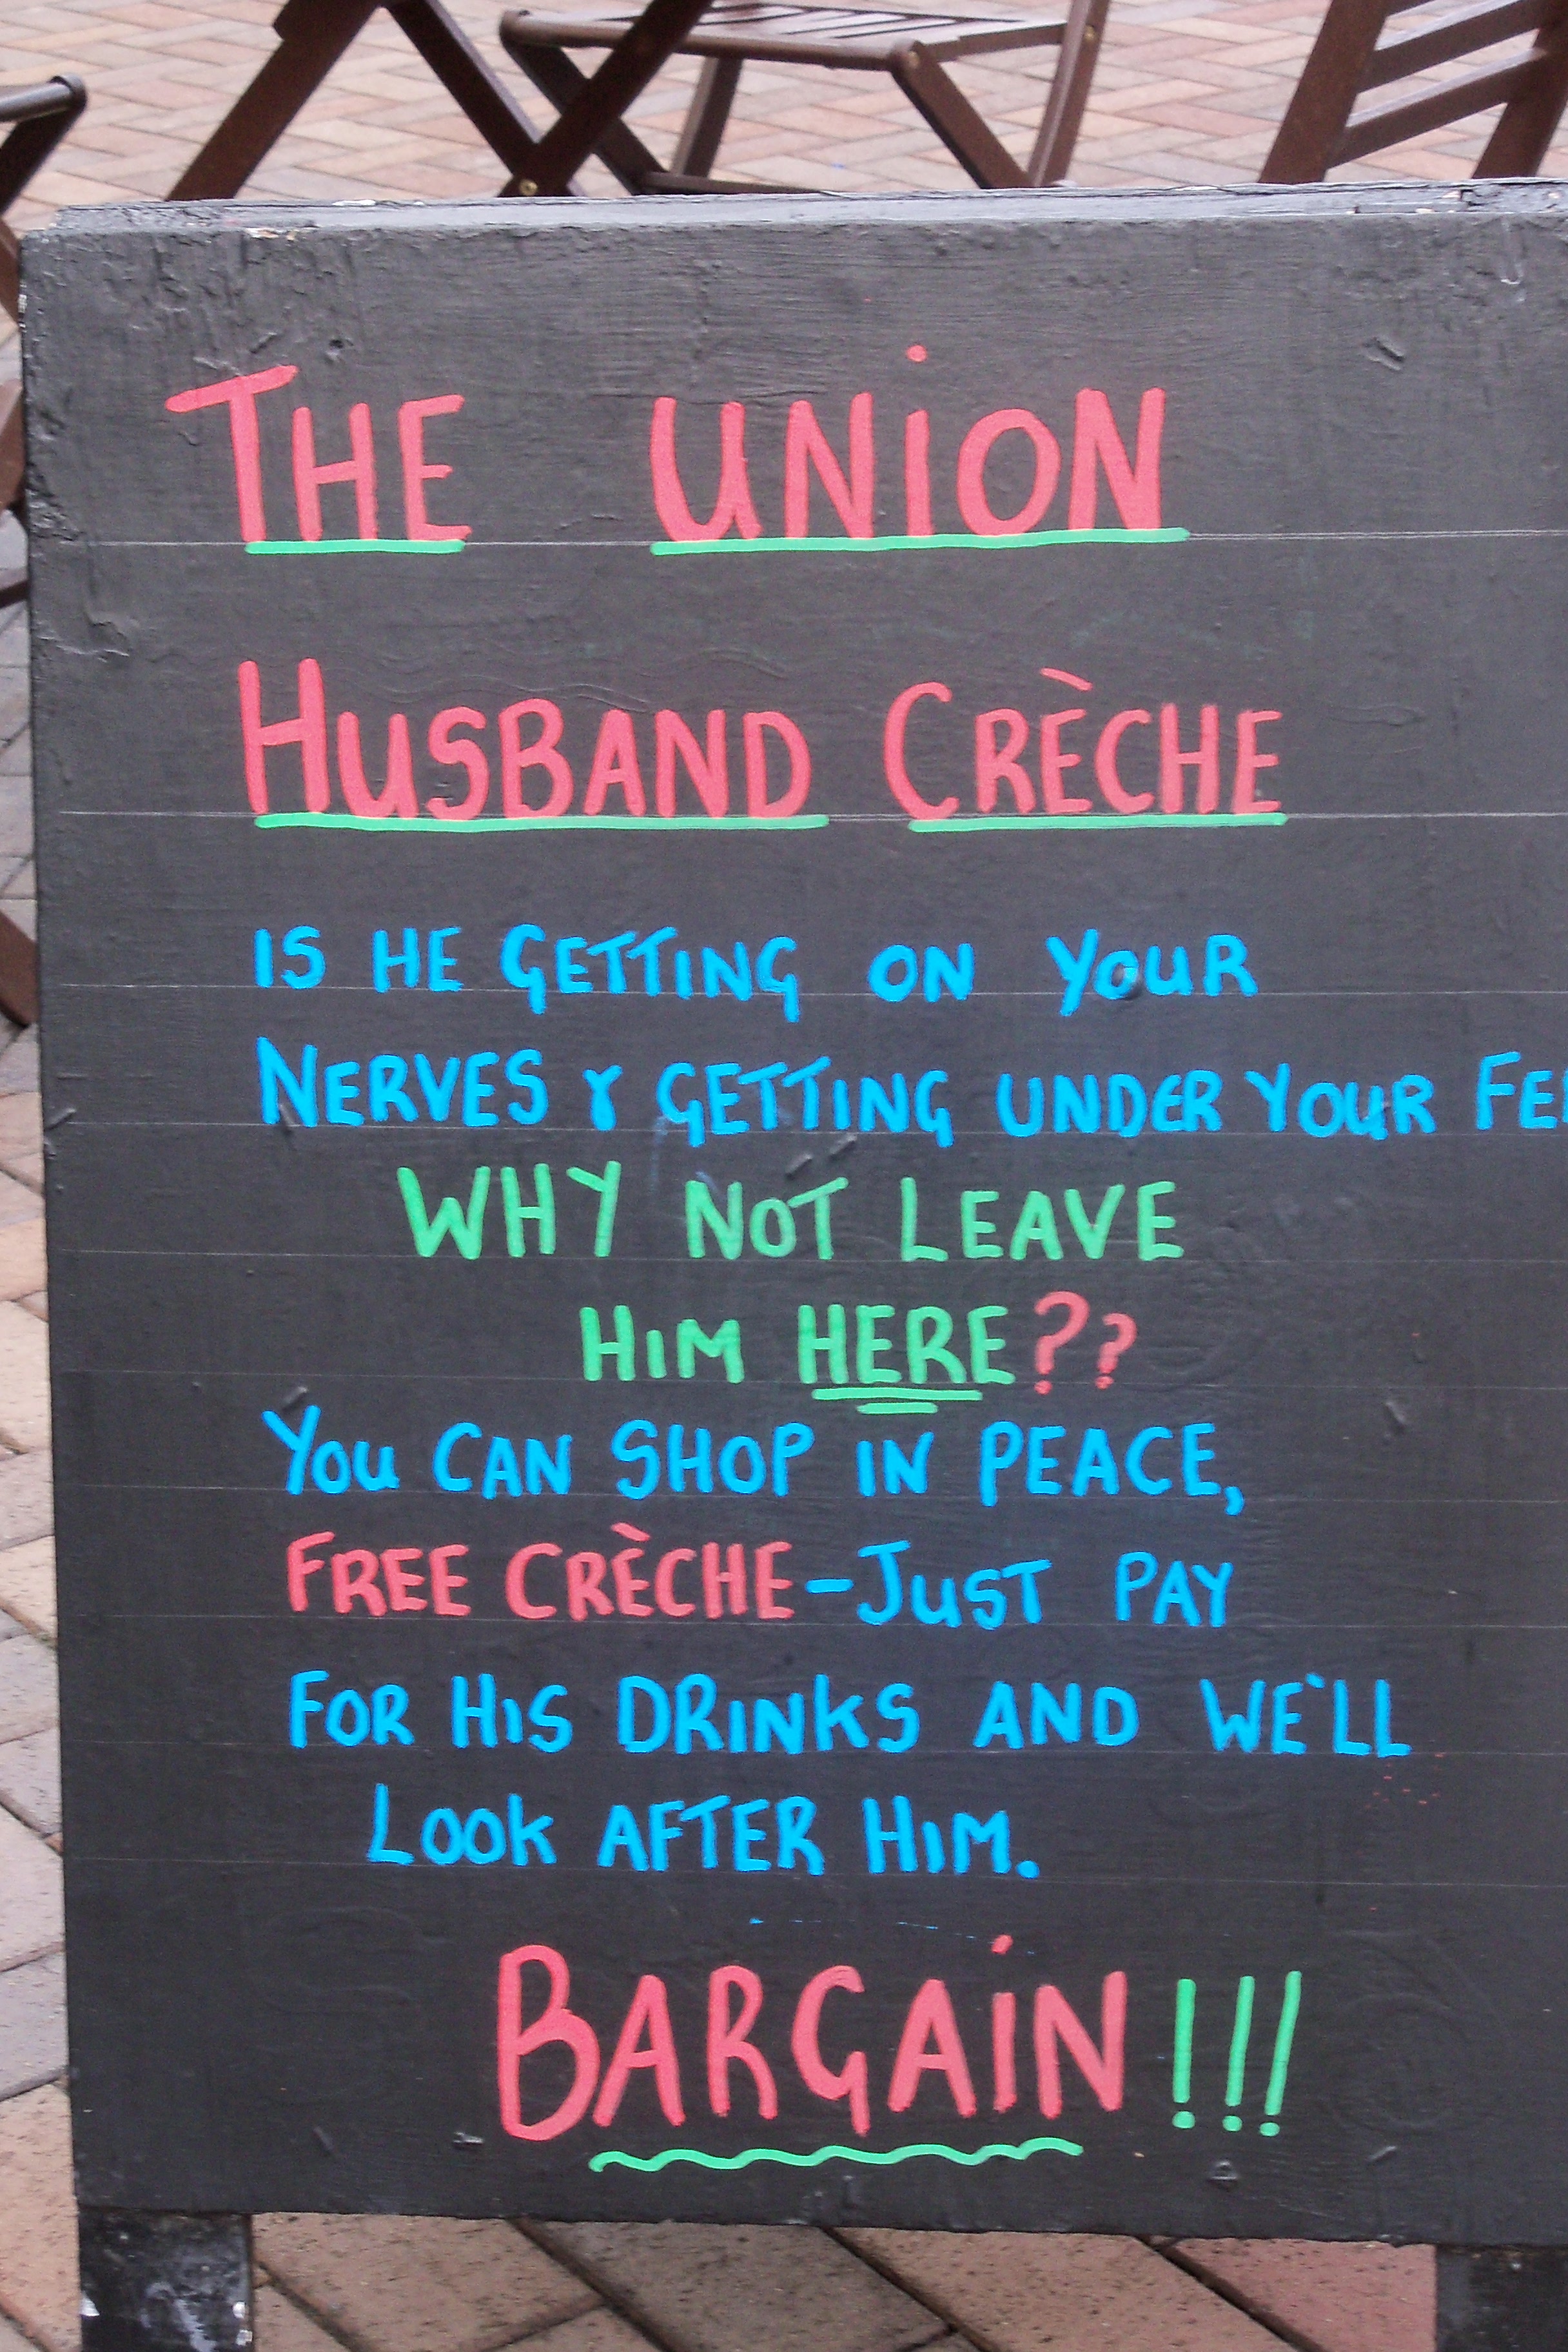 THE UNION
HUSBAND CRÈCHE
IS HE GETTING ON YOUR
NERVES & GETTING UNDER YOUR
WHY NOT LEAVE
HIM HERE??
YOU CAN SHOP IN PEACE,
FREE CRÈCHE-JUST PAY
FOR HIS DRINKS AND WE'LL
LOOK AFTER HIM.
BARGAIN!!!